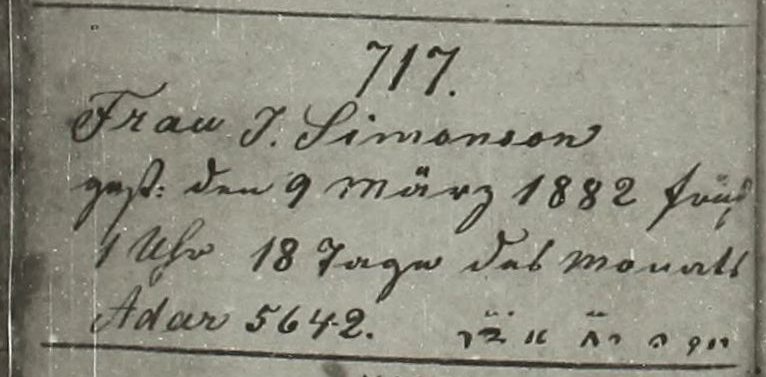 717.
Frau J. Simonson
gest: den 9 März 1882 früh
1 Uhr 18 Tage des Monats
Adar 5642.